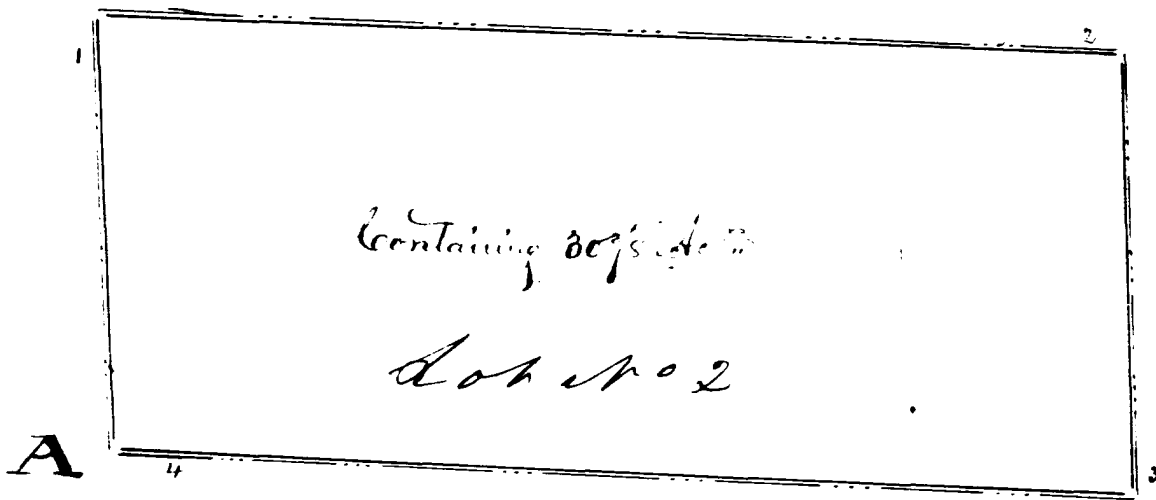 1
2
Containing 307½
Lot No 2
A
4
3